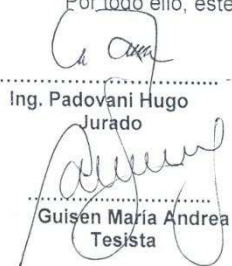 Por todo ello, este
Ing. Padovani Hugo
Jurado
Guisen María Andrea
Tesista